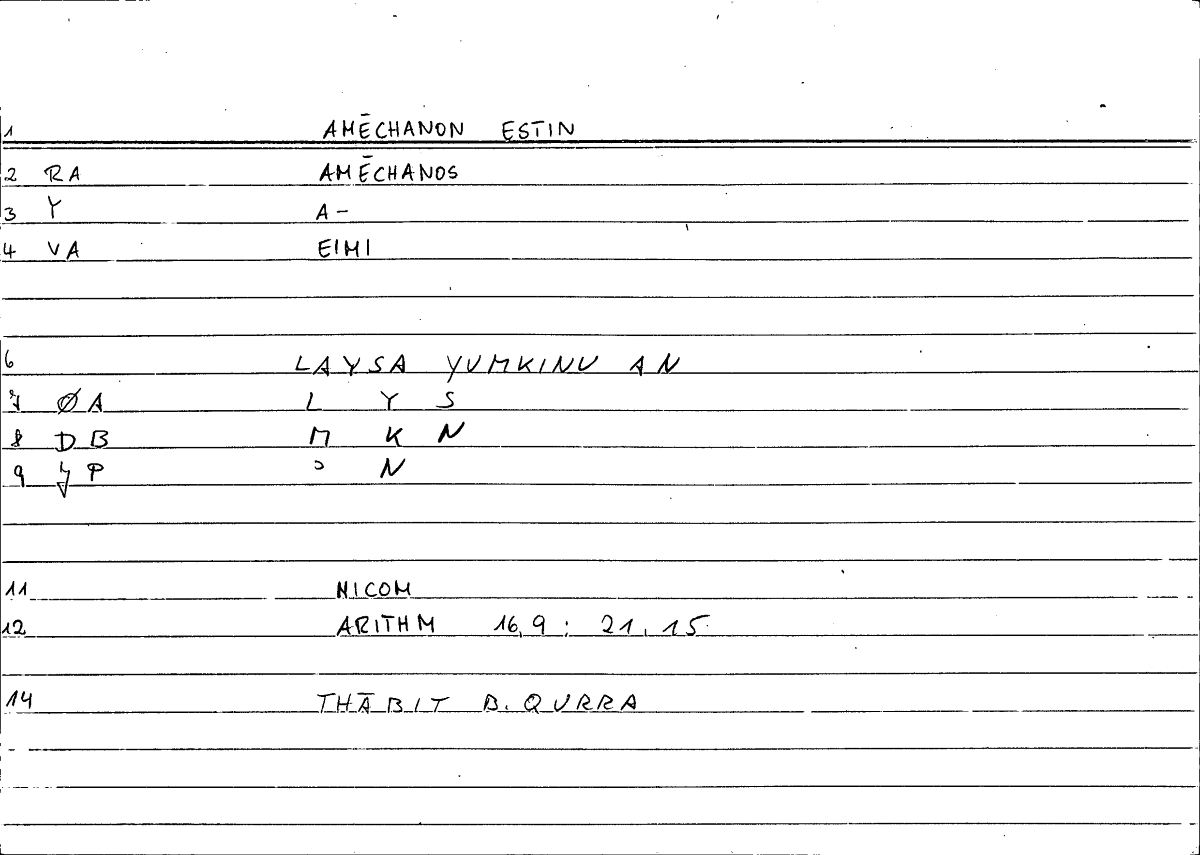 1 AMĒCHANON ESTIN
2 RA AMĒCHANOS
3 Y A-
4 VA EIMI
6 LAYSA YUMKINU AN
7 ØA L Y S
8 DB M K N
9 P ʾ N
11 NICOM
12 ARITHM 16,9 : 21,15
14 THĀBIT B. QURRA